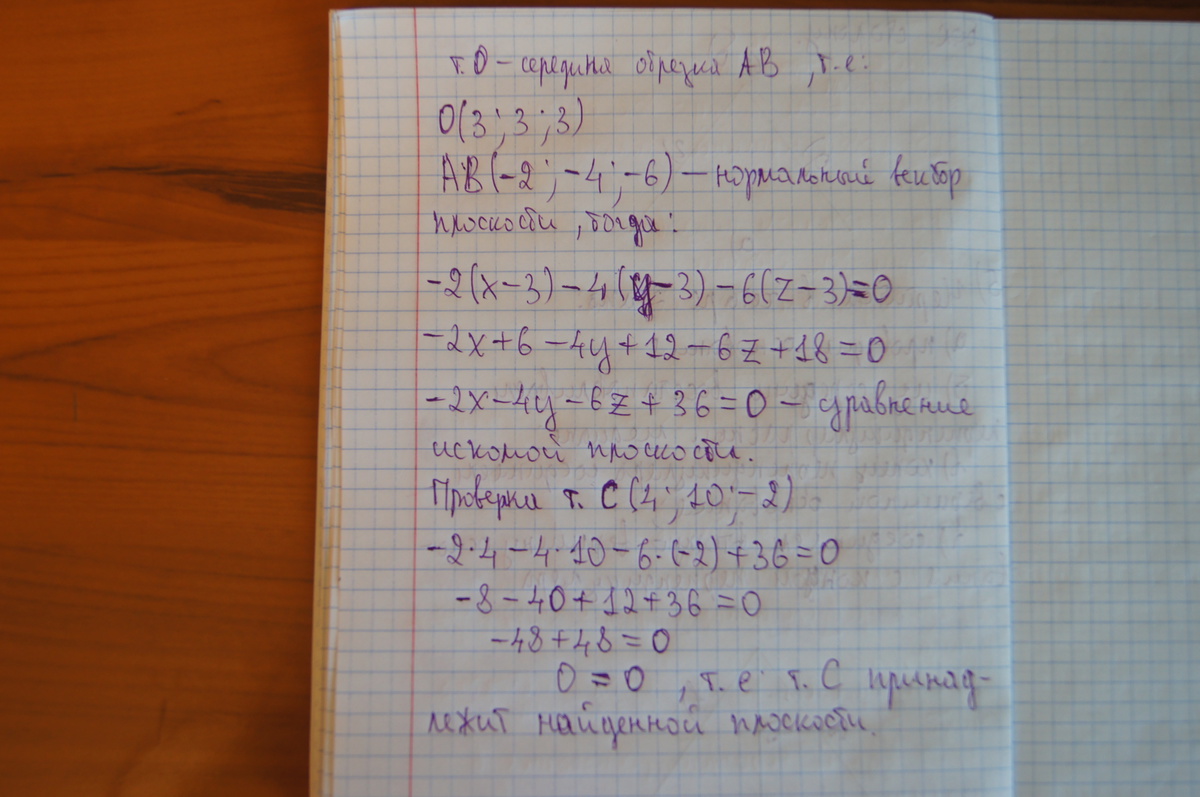 т. О – середина отрезка АВ, т.е:
О(3; 3; 3)
АВ(-2; -4; -6) – нормальный вектор
плоскости, тогда:
-2(x-3)-4(y-3)-6(z-3)=0
-2x+6-4y+12-6z+18=0
-2x-4y-6z+36=0 – уравнение
искомой плоскости.
Проверка т. С(4; 10; -2)
-2·4-4·10-6·(-2)+36=0
-8-40+12+36=0
-48+48=0
0=0, т.е. т. С принад-
лежит найденной плоскости.